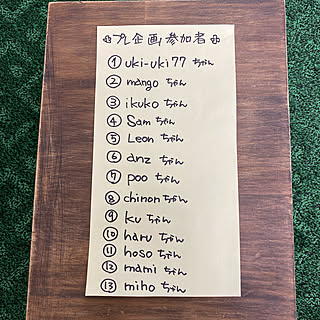 ✿プレ企画参加者✿
① uki-uki77 ちゃん
② mango ちゃん
③ ikuko ちゃん
④ Sam ちゃん
⑤ Leon ちゃん
⑥ anz ちゃん
⑦ poo ちゃん
⑧ chinon ちゃん
⑨ ku ちゃん
⑩ haru ちゃん
⑪ hoso ちゃん
⑫ mami ちゃん
⑬ miho ちゃん